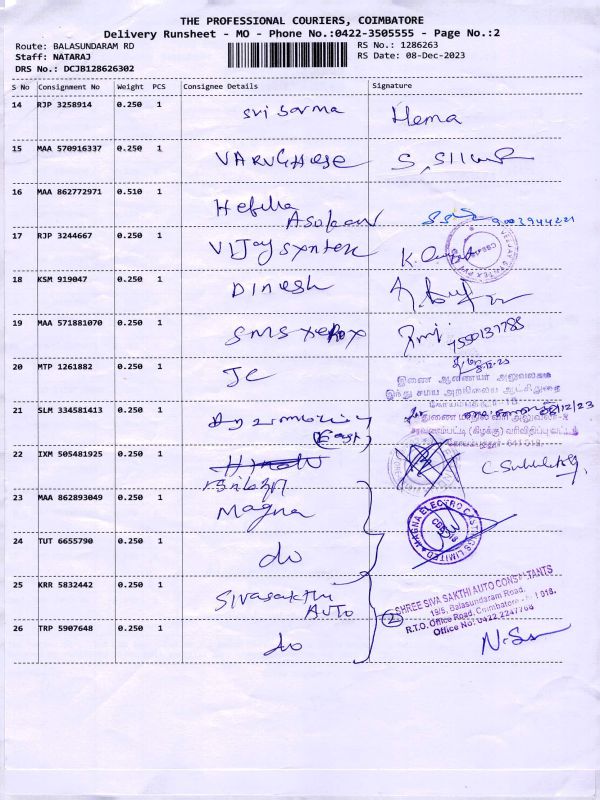 THE PROFESSIONAL COURIERS, COIMBATORE
Delivery Runsheet - MO - Phone No.:0422-3505555 - Page No.:2
Route: BALASUNDARAM RD
RS No.: 1286263
Staff: NATARAJ
RS Date: 08-Dec-2023
DRS No.: DCJB128626302
S No Consignment No Weight PCS Consignee Details Signature
14 RJP 3258914 0.250 1 Sri Sarma Hema
15 MAA 570916337 0.250 1 VARUGHESE
16 MAA 862772971 0.510 1 Asokan
17 RJP 3244667 0.250 1 VIJAY Syntex
18 KSM 919047 0.250 1 Dinesh
19 MAA 571881070 0.250 1 SMS xerox
20 MTP 1261882 0.250 1 JC
இணை ஆணையர் அலுவலகம்
இந்து சமய அறநிலைய ஆட்சித்துறை
21 SLM 334581413 0.250 1 (East)
22 IXM 505481925 0.250 1
23 MAA 862893049 0.250 1 Magna
MAGNA ELECTRO CASTINGS LIMITED
24 TUT 6655790 0.250 1 do
25 KRR 5832442 0.250 1 Sivasakthi AUTO
SHREE SIVA SAKTHI AUTO CONSULTANTS
19/5, Balasundaram Road,
R.T.O. Office Road, Coimbatore
Office No: 0422 2247768
26 TRP 5907648 0.250 1 do